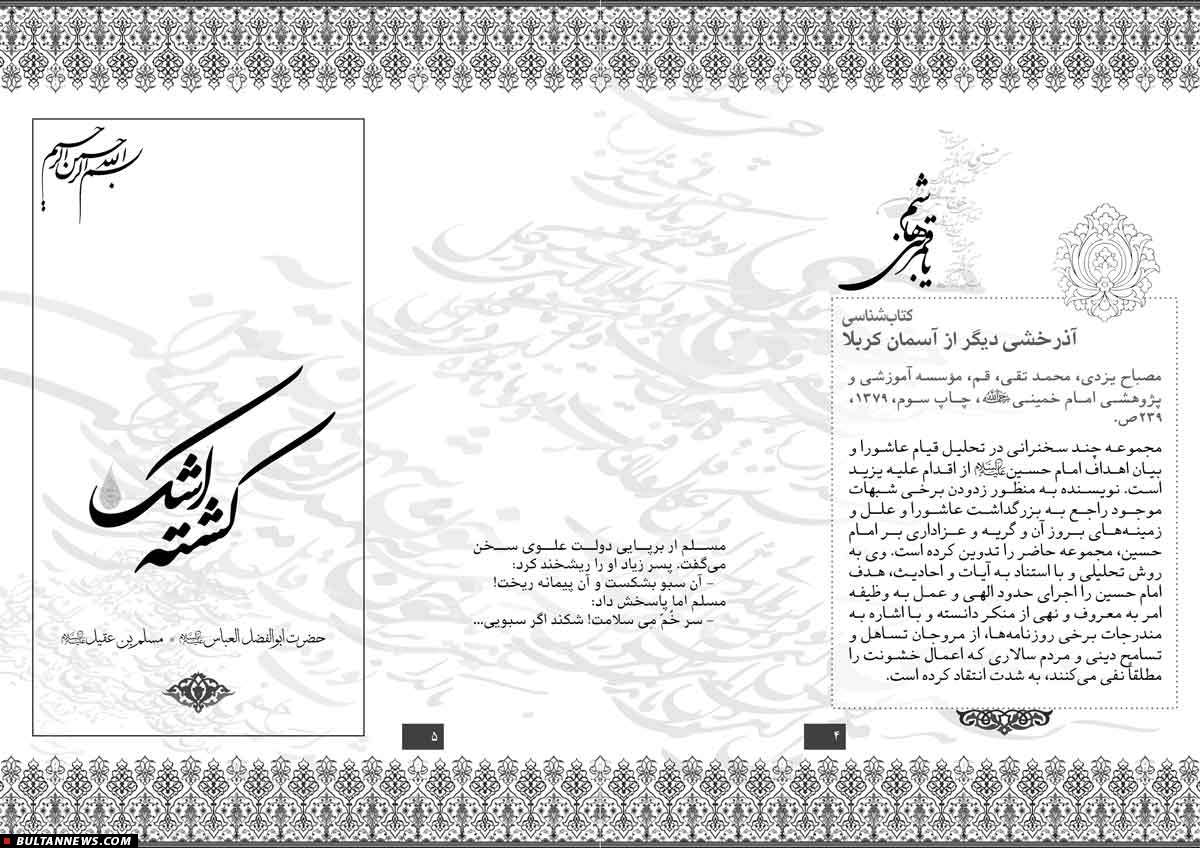 یا قمر بنی هاشم
کتاب‌شناسی
آذرخشی دیگر از آسمان کربلا
مصباح یزدی، محمد تقی، قم، مؤسسه آموزشی و
پژوهشی امام خمینی رحمه‌الله، چاپ سوم، ۱۳۷۹،
۲۳۹ص.
مجموعه چند سخنرانی در تحلیل قیام عاشورا و
بیان اهداف امام حسین علیه‌السلام از اقدام علیه یزید
است. نویسنده به منظور زدودن برخی شبهات
موجود راجع به بزرگداشت عاشورا و علل و
زمینه‌های بروز آن و گریه و عزاداری بر امام
حسین، مجموعه حاضر را تدوین کرده است. وی به
روش تحلیلی و با استناد به آیات و احادیث، هدف
امام حسین را اجرای حدود الهی و عمل به وظیفه
امر به معروف و نهی از منکر دانسته و با اشاره به
مندرجات برخی روزنامه‌ها، از مروجان تساهل و
تسامح دینی و مردم سالاری که اعمال خشونت را
مطلقاً نفی می‌کنند، به شدت انتقاد کرده است.
۴
مسلم ار برپایی دولت علوی سخن
می‌گفت. پسر زیاد او را ریشخند کرد:
- آن سبو بشکست و آن پیمانه ریخت!
مسلم اما پاسخش داد:
- سر خُمّ می سلامت! شکند اگر سبویی...
۵
بسم الله الرحمن الرحیم
کشته اشک
حضرت ابوالفضل العباس علیه‌السلام * مسلم بن عقیل علیه‌السلام
BULTANNEWS.COM